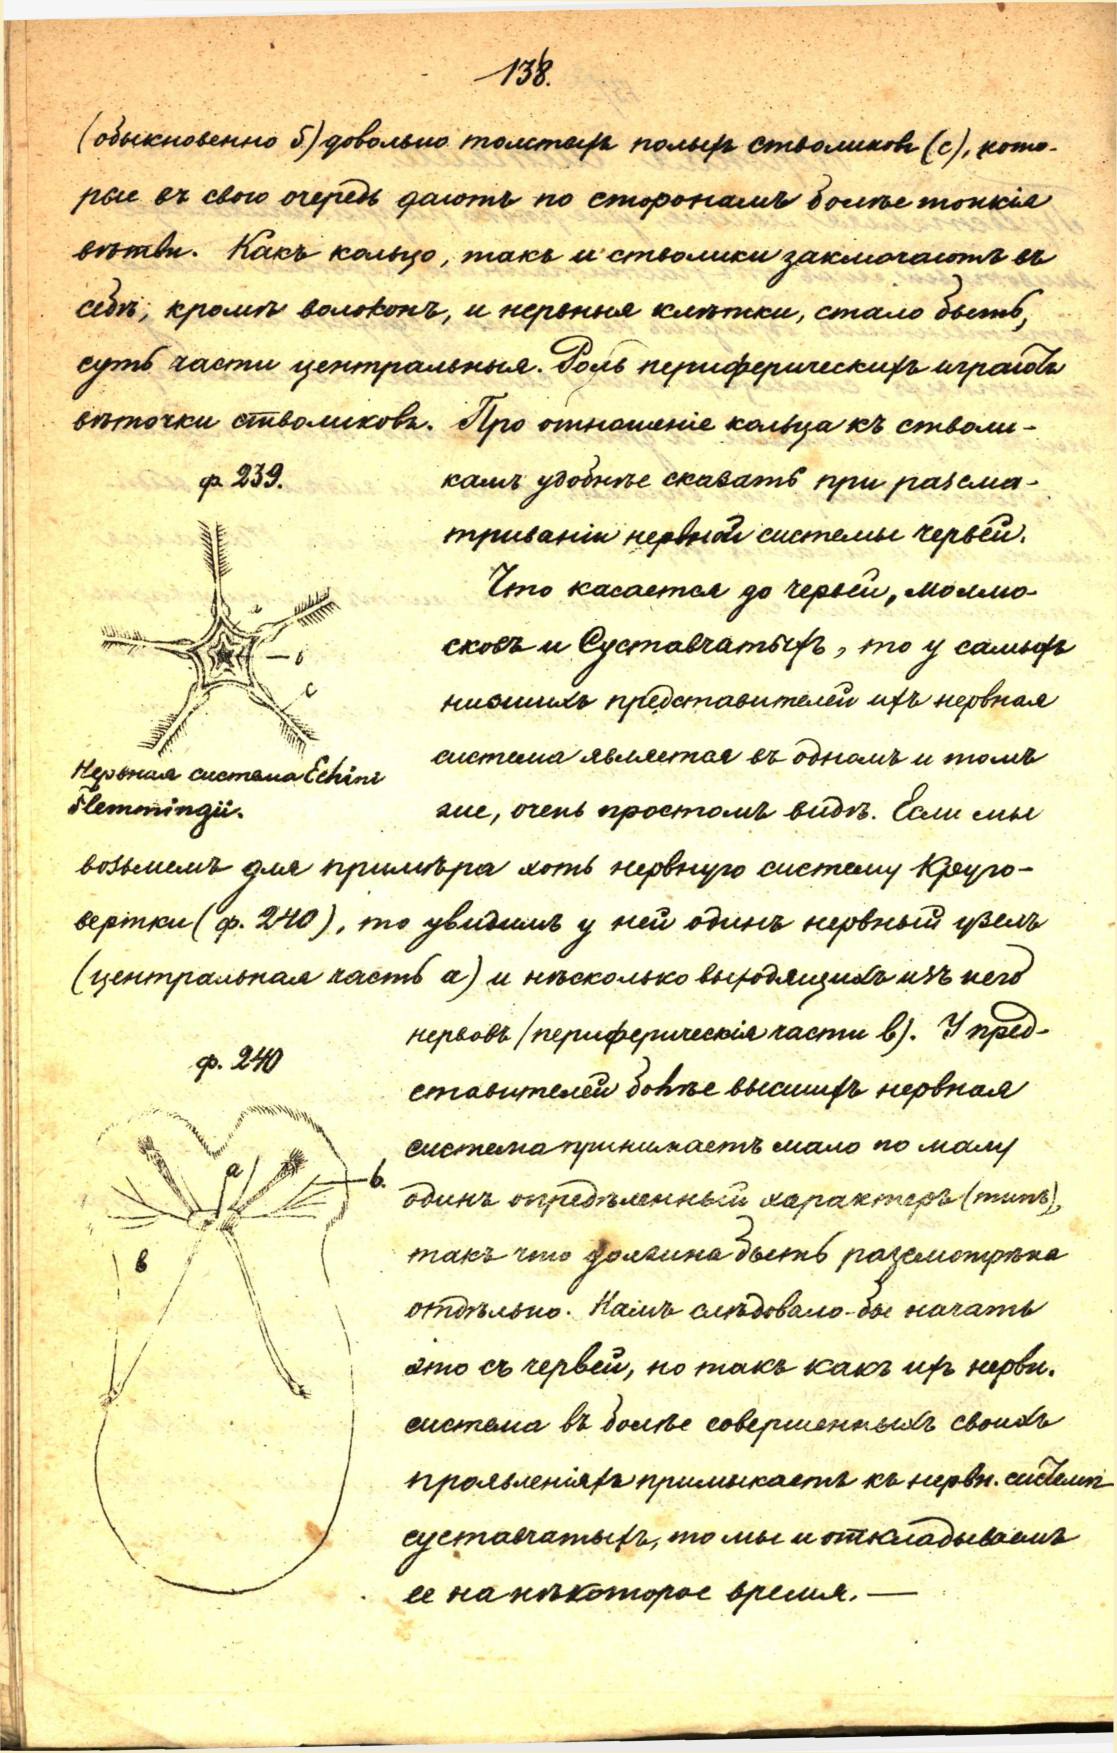 138.
(обыкновенно 5) довольно толстыхъ полыхъ стволиковъ (с), кото-
рые въ свою очередь даютъ по сторонамъ болѣе тонкія
вѣтви. Какъ кольцо, такъ и стволики заключаютъ въ
себѣ, кромѣ волоконъ, и нервныя клѣтки, стало быть,
суть части центральныя. Роль периферическихъ играютъ
вѣточки стволиковъ. Про отношеніе кольца къ стволи-
ф. 239.
камъ удобнѣе сказать при разсма-
триваніи нервной системы червей.
Что касается до червей, моллю-
сковъ и Суставчатыхъ, то у самыхъ
в
с
низшихъ представителей ихъ нервная
система является въ одномъ и томъ
Нервная система Echini
Flemmingii.
же, очень простомъ видѣ. Если мы
возьмемъ для примѣра хоть нервную систему Круго-
вертки (ф. 240), то увидимъ у ней одинъ нервный узелъ
(центральная часть а) и нѣсколько выходящихъ изъ него
нервовъ (периферическія части в). У пред-
ф. 240
ставителей болѣе высшихъ нервная
система принимаетъ мало по малу
а
в.
одинъ опредѣленный характеръ (типъ),
такъ что должна быть разсмотрѣна
в
отдѣльно. Намъ слѣдовало-бы начать
это съ червей, но такъ какъ ихъ нервн.
система въ болѣе совершенныхъ своихъ
проявленіяхъ примыкаетъ къ нервн. системѣ
суставчатыхъ, то мы и откладываемъ
ее на нѣкоторое время. —